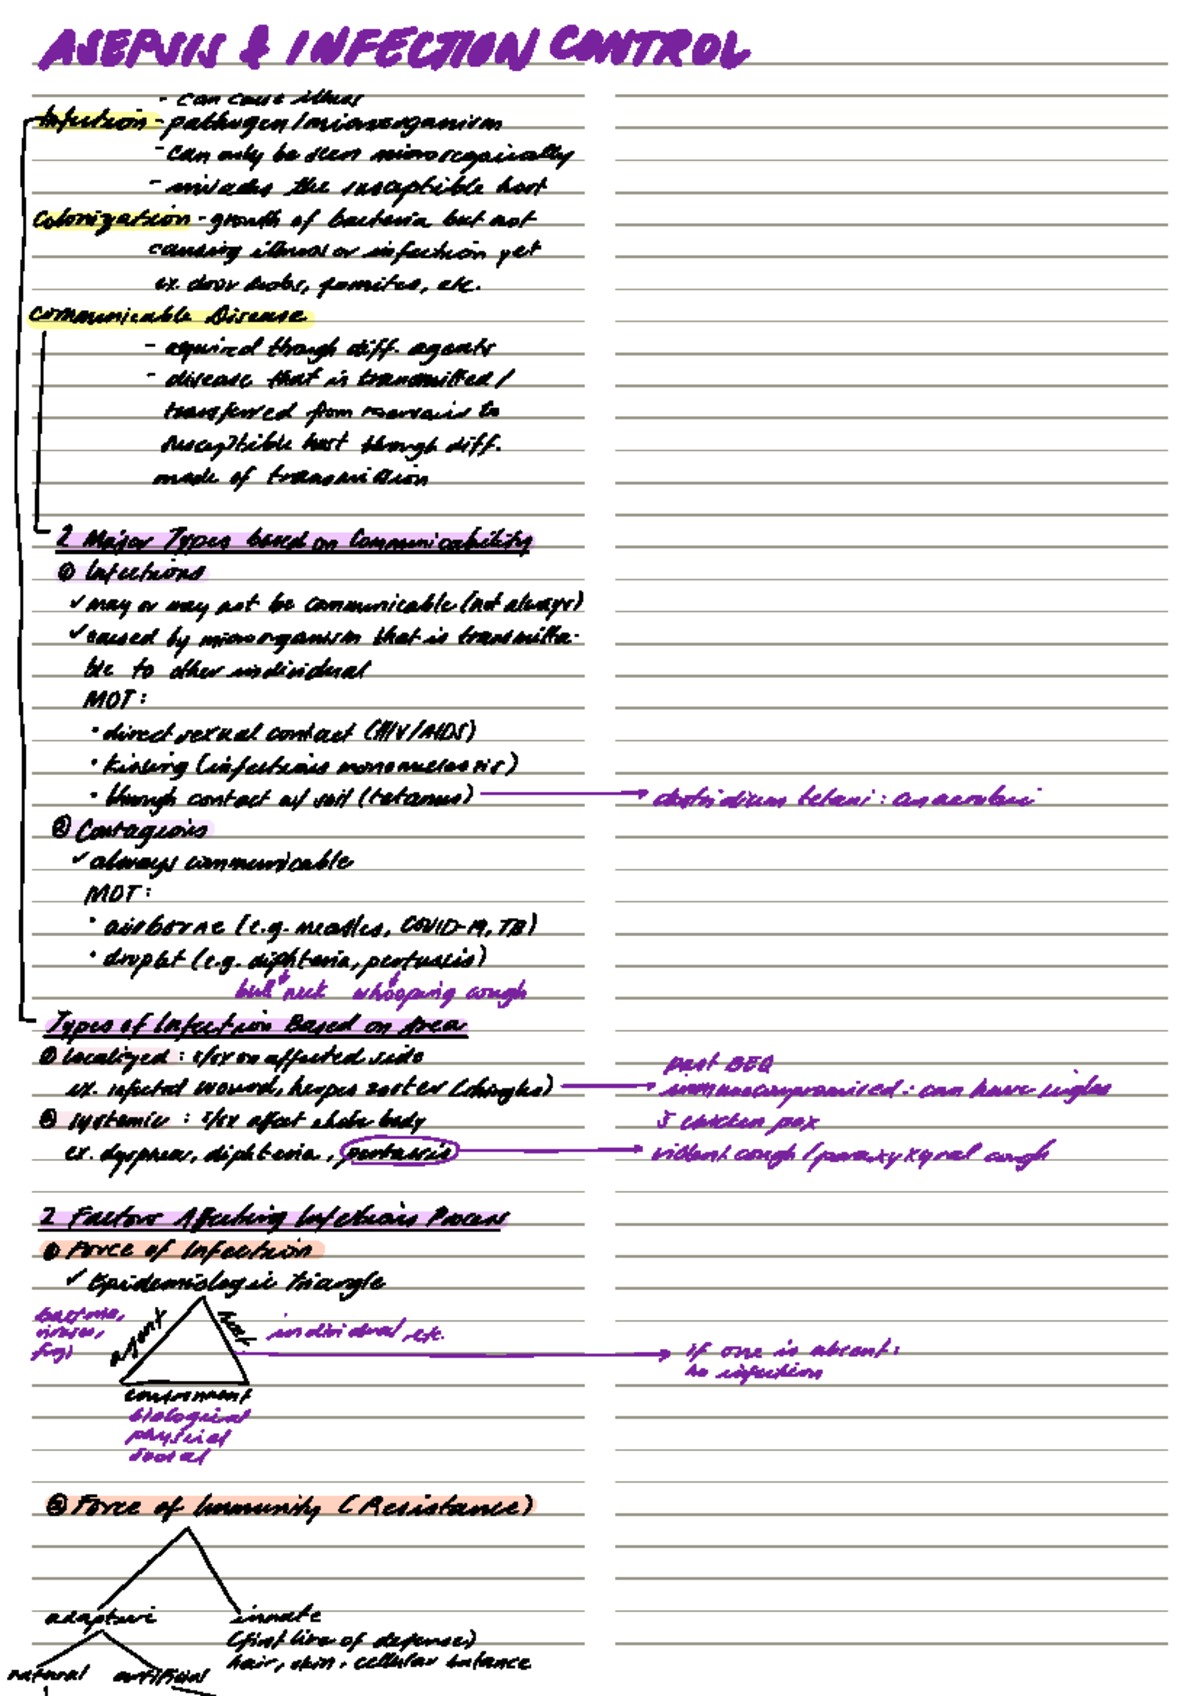 ASEPSIS & INFECTION CONTROL
- can cause illness
Infection - pathogen/microorganism
- can only be seen microscopically
- invades the susceptible host
Colonization - growth of bacteria but not
causing illness or infection yet
ex. door knobs, fomites, etc.
Communicable Disease
- aquired though diff. agents
- disease that is transmitted/
transferred from reservoir to
susceptible host through diff.
mode of transmission
2 Major Types based on Communicability
① Infectious
✓ may or may not be communicable (not always)
✓ caused by microorganism that is transmitta-
ble to other individual
MOT:
• direct sexual contact (HIV/AIDS)
• kissing (infectious mononucleosis)
• through contact w/ soil (tetanus) → clostridium tetani: anaerobic
② Contageous
✓ always communicable
MOT:
• airborne (e.g. measles, COVID-19, TB)
• droplet (e.g. diphteria, pertussis)
bull neck whooping cough
Types of Infection Based on Area
① localized: s/sx on affected side
ex. infected wound, herpes zoster (shingles) →
past BEQ
immunocompromised: can have
chicken pox
② systemic: s/sx affect whole body
ex. diphteria, pertussis → violent cough/ cough
2 Factors Affecting Infectious Process
① Force of Infection
✓ Epidemiologic Triangle
bacteria,
viruses,
fungi
agent
host
individual, etc.
→ if one is absent:
no infection
environment
biological
physical
social
② Force of Immunity (Resistance)
adaptive innate
(first line of defense)
hair, skin, cellular balance
natural artificial